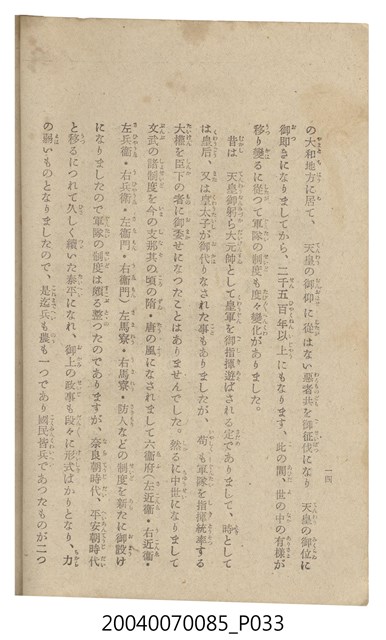 一四
の大和地方に居て、　天皇の御仰に從はない惡者共を御征伐になり　天皇の御位に
御卽きになりましてから、二千五百年以上にもなります、此の間、世の中の有樣が
移り變るに從つて軍隊の制度も度々變化がありました。
昔は　天皇御躬ら大元帥として皇軍を御指揮遊ばされる定でありまして、時として
は皇后、又は皇太子が御代りなされた事もありましたが、苟も軍隊を指揮統率する
大權を臣下の者に御委せになつたことはありませんでした。然るに中世になりまして
文武の諸制度を今の支那其の頃の隋・唐の風になされまして六衞府（左近衞・右近衞・
左兵衞・右兵衞・左衞門・右衞門）左馬寮・右馬寮・防人などの制度を新たに御設け
になりましたので軍隊の制度は頗る整つたのでありますが、奈良朝時代、平安朝時代
と移るにつれて久しく續いた泰平になれ、御上の政事も段々に形式ばかりとなり、力
の弱いものとなりましたので、是迄兵も農も一つであり國民皆兵であつたものが二つ
20040070085_P033